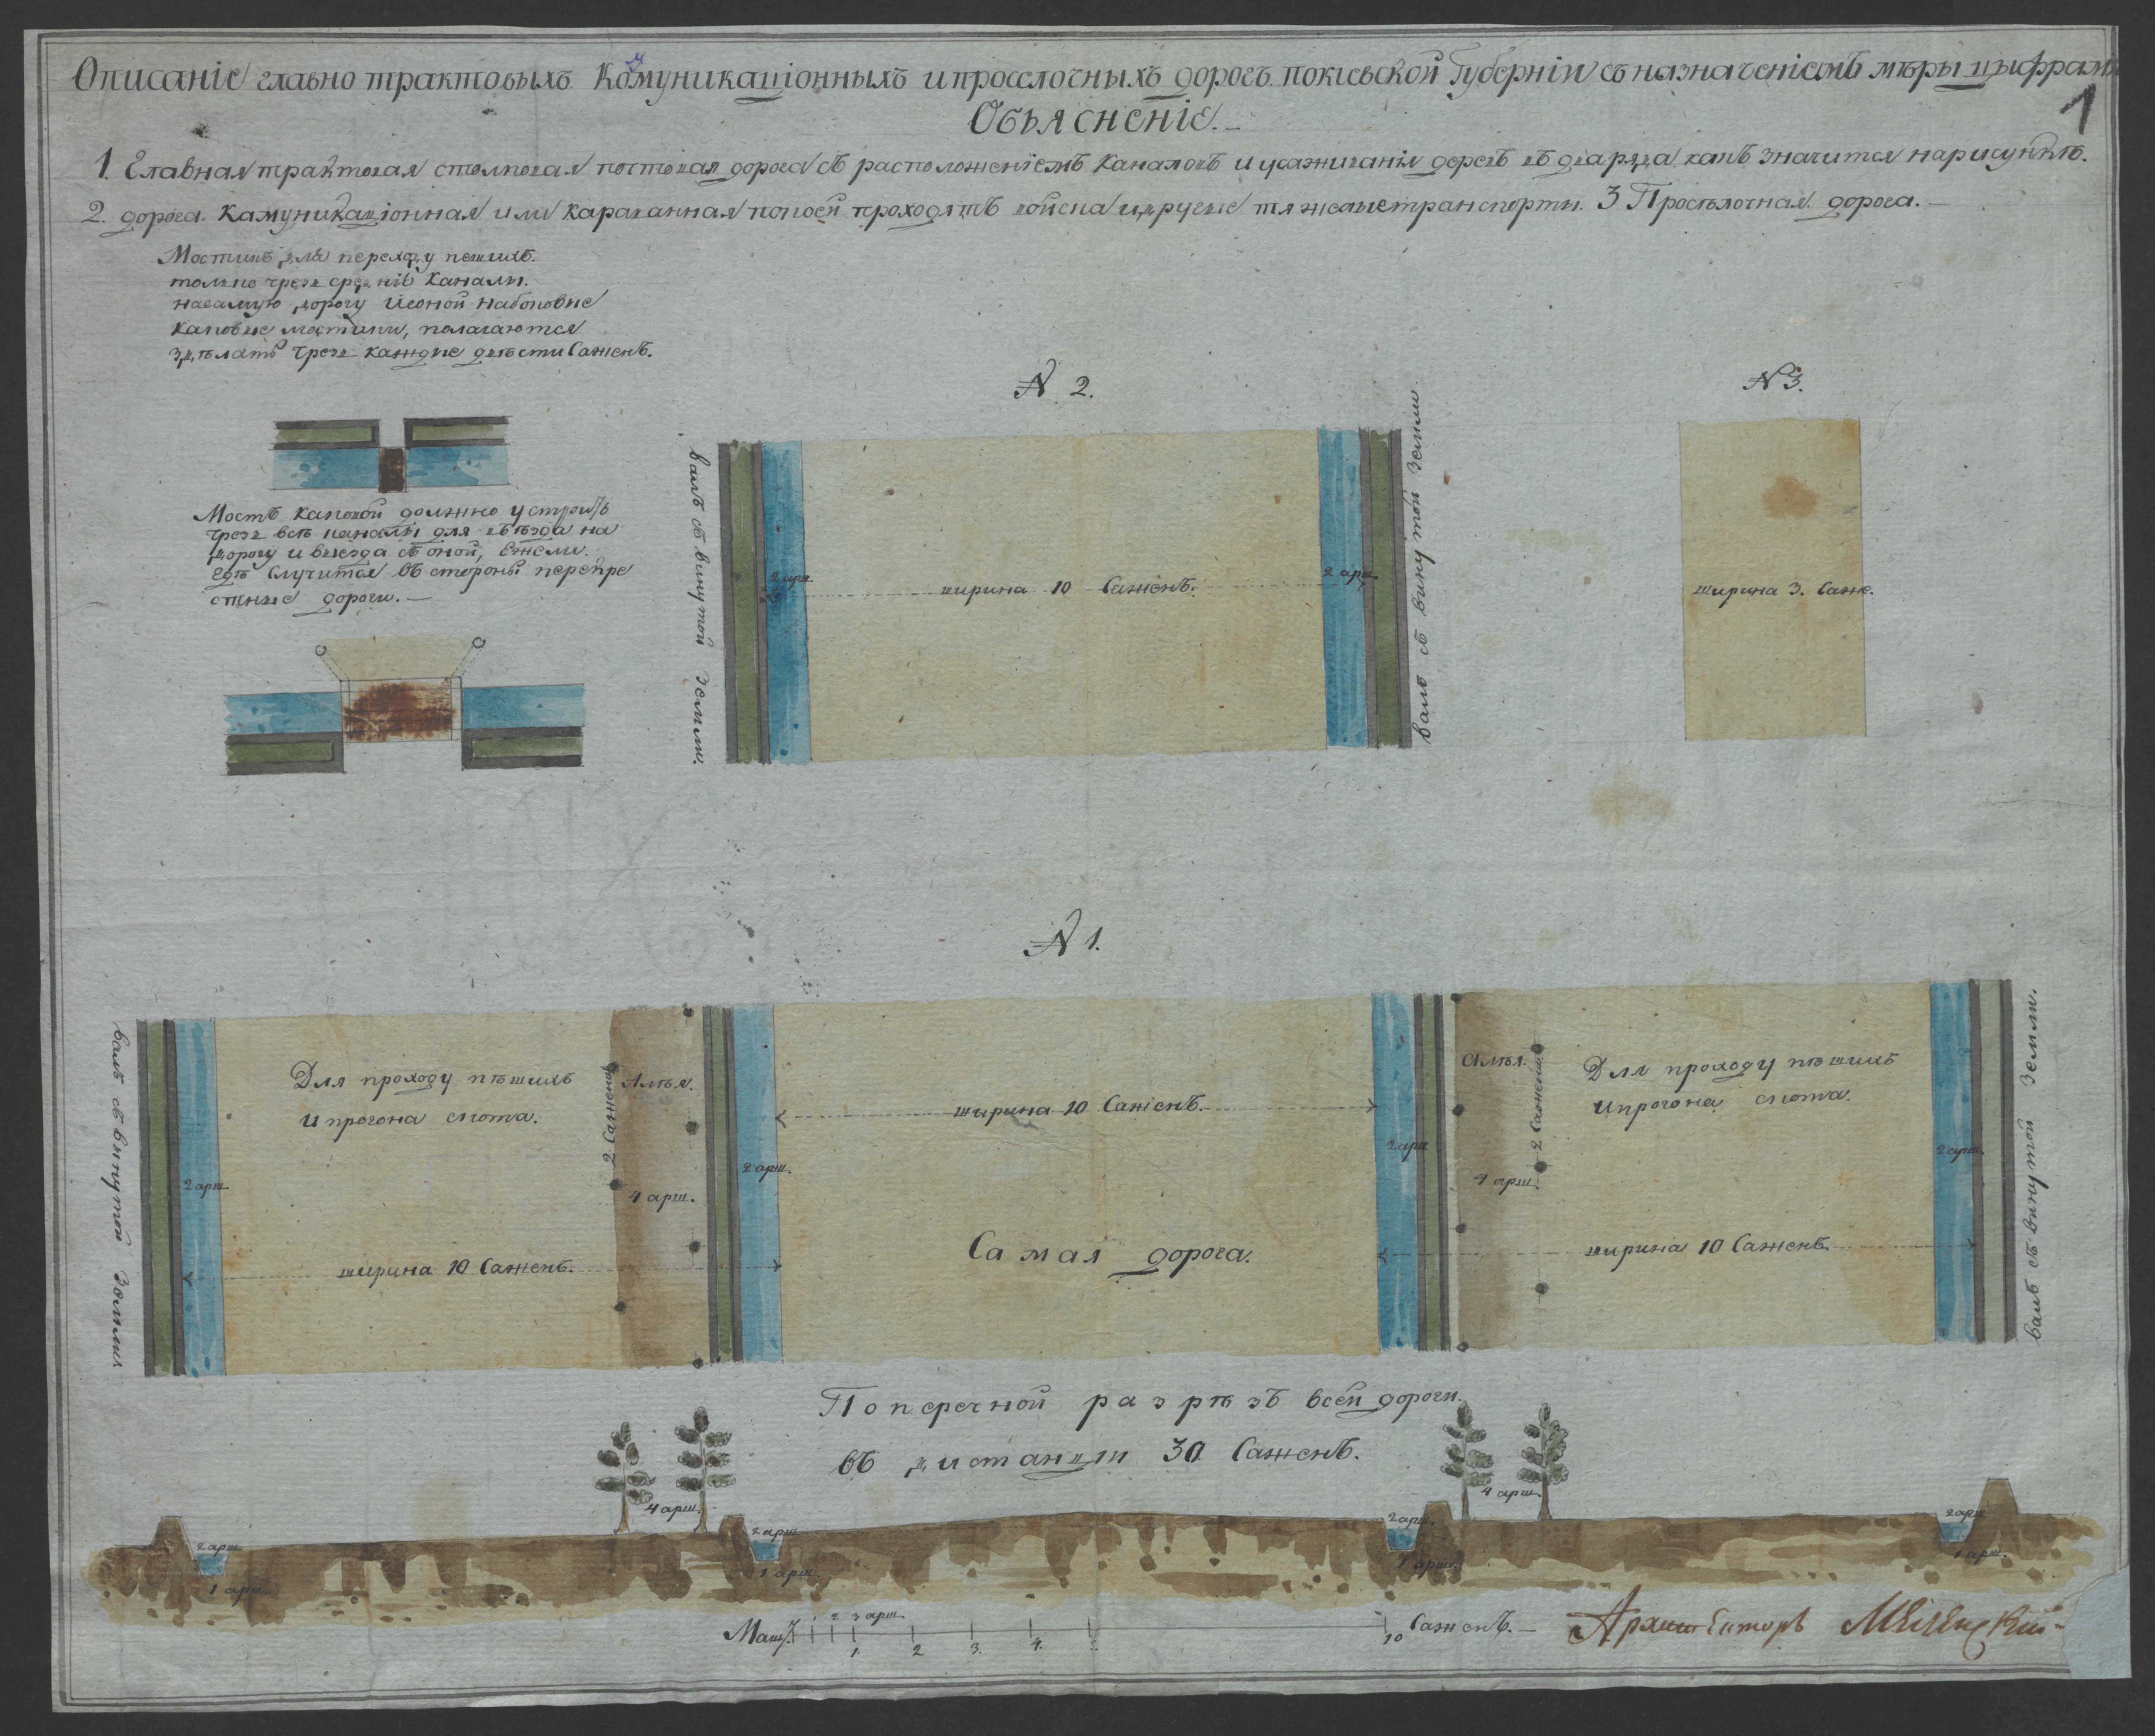 Описаніе главно трактовыхъ Комуникаціонныхъ и проселочныхъ дорогъ по Кіевской Губерніи съ назначеніемъ мѣры цыфрами
1
Объясненіе.
1. Главная трактовая столповая почтовая дорога съ расположеніемъ каналовъ и усаживанія деревъ въ два ряда какъ значится на рисункѣ.
2. дорога. Камуникаціонная или караванная по коей проходятъ войска и другие тяжелые транспорты. 3 Просѣлочная дорога.
Мостикъ для переходу пешихъ.
только чрезъ средніе каналы.
на самую дорогу и с оной на боковые
каковые мостики, полагаются
здѣлать чрезъ каждые двѣсти Саженъ.
Мостъ каковой должно устроить
чрезъ всѣ каналы для въѣзда на
дорогу и выезда съ оной, Ежели
гдѣ Случится въ стороны перекре
стные дороги.
N 2.
валъ съ вынутой земли.
2 арш.
ширина 10 Саженъ.
2 арш.
валъ съ вынутой Земли
N 3.
ширина 3. Саже.
N 1.
валъ съ вынутой Земли
2 арш.
Для проходу пѣшихъ
и прогона скота.
ширина 10 Саженъ.
2 Сажени
Алѣя.
4 арш.
2 арш.
ширина 10 Саженъ.
Самая дорога.
2 арш
Алѣя.
4 арш.
2 Сажени
Для проходу пѣшихъ
и прогона скота.
ширина 10 Саженъ.
2 арш.
валъ съ вынутой Земли.
Поперечной разрѣзъ всей дороги.
въ дистанціи 30 Саженъ.
4 арш.
4 арш.
2 арш.
2 арш.
2 арш.
2 арш
1 арш.
1 арш.
1 арш.
1 арш.
Маш. 1 2 3 арш.
1. 2 3. 4. 10 Саженъ.
Архитекторъ Меленскій